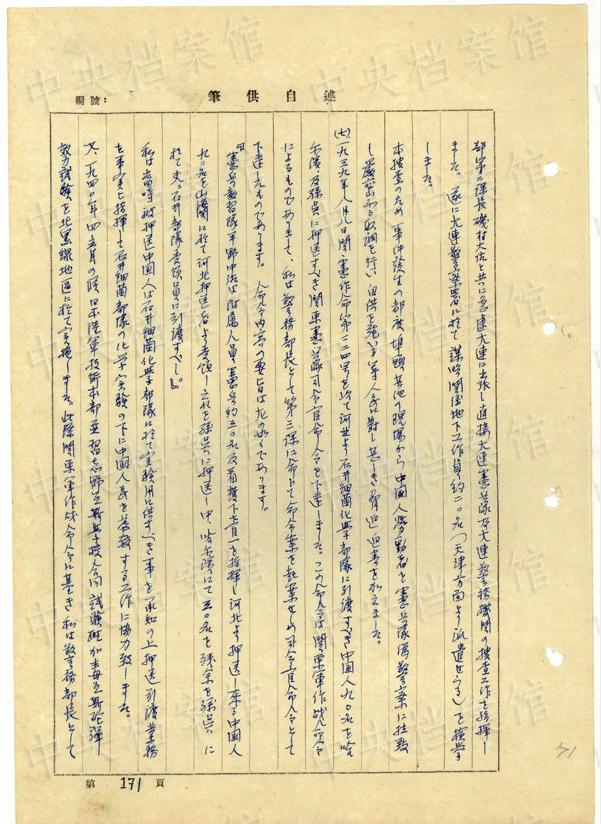 編號:
筆供自述
部第二課長磯村大佐と共に急遽大連に出張し直接大連憲兵隊及大連警務機関の捜査工作を指揮し
ました。遂に大連警察署に於て謀略関係地下工作員約二〇名(天津方面より派遣せらる)を検挙
しました。
本捜査のため事件発生の都度埠頭其他の現場から中国人労働者を憲兵隊及警察に拉致
し厳密なる取調を行い自供を強いる等人民に対し甚しき脅迫迫害を加えました。
(七)一九三九年八月八日関憲作命第二二四号を以て河北より石井細菌化学部隊に引渡すべき中国人九〇名を哈
爾濱及孫呉に押送すべき関東憲兵隊司令官命令を下達しました。この命令は関東軍作戦命令
によるものでありまして、私は警務部長として第三課に命じて命令案を起案せしめ司令官命令として
下達したものであります。命令内容の要旨は左の如くであります。
『憲兵教習隊平野中佐は附属人員憲兵約三〇名及看護下士官一を指揮し河北より押送し来る中国人
九〇名を山海関に於て河北押送者より受領し之を孫呉に押送し中、哈爾濱にて三〇名を残余を孫呉に
於て夫々石井部隊受領員に引渡すべし』。
私は当時被押送中国人は石井細菌化学部隊に於て実験用に供すべき事を承知の上押送引渡業務
を事実上指揮して石井細菌部隊の化学実験の下に中国人民を惨殺する工作に協力致しました。
八、一九四〇年四五月の頃日本陸軍技術本部並習志野瓦斯学校合同試験班が毒瓦斯砲弾
効力試験を北黒線地区に於て実施しました。此際関東軍作戦命令に基き私は警務部長として
第171頁
中央档案馆